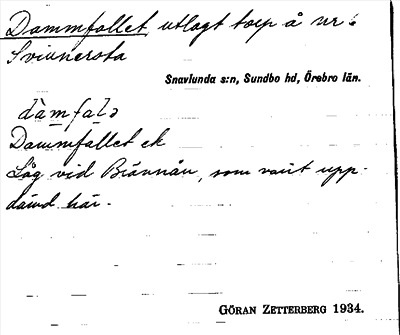 Dammfallet, utlagt torp å nr 6
Svinnersta
Snavlunda s:n, Sundbo hd, Örebro län.
dàmfalə
Dammfallet ek
Låg vid Brännån, som varit upp-
dämd här.
GÖRAN ZETTERBERG 1934.